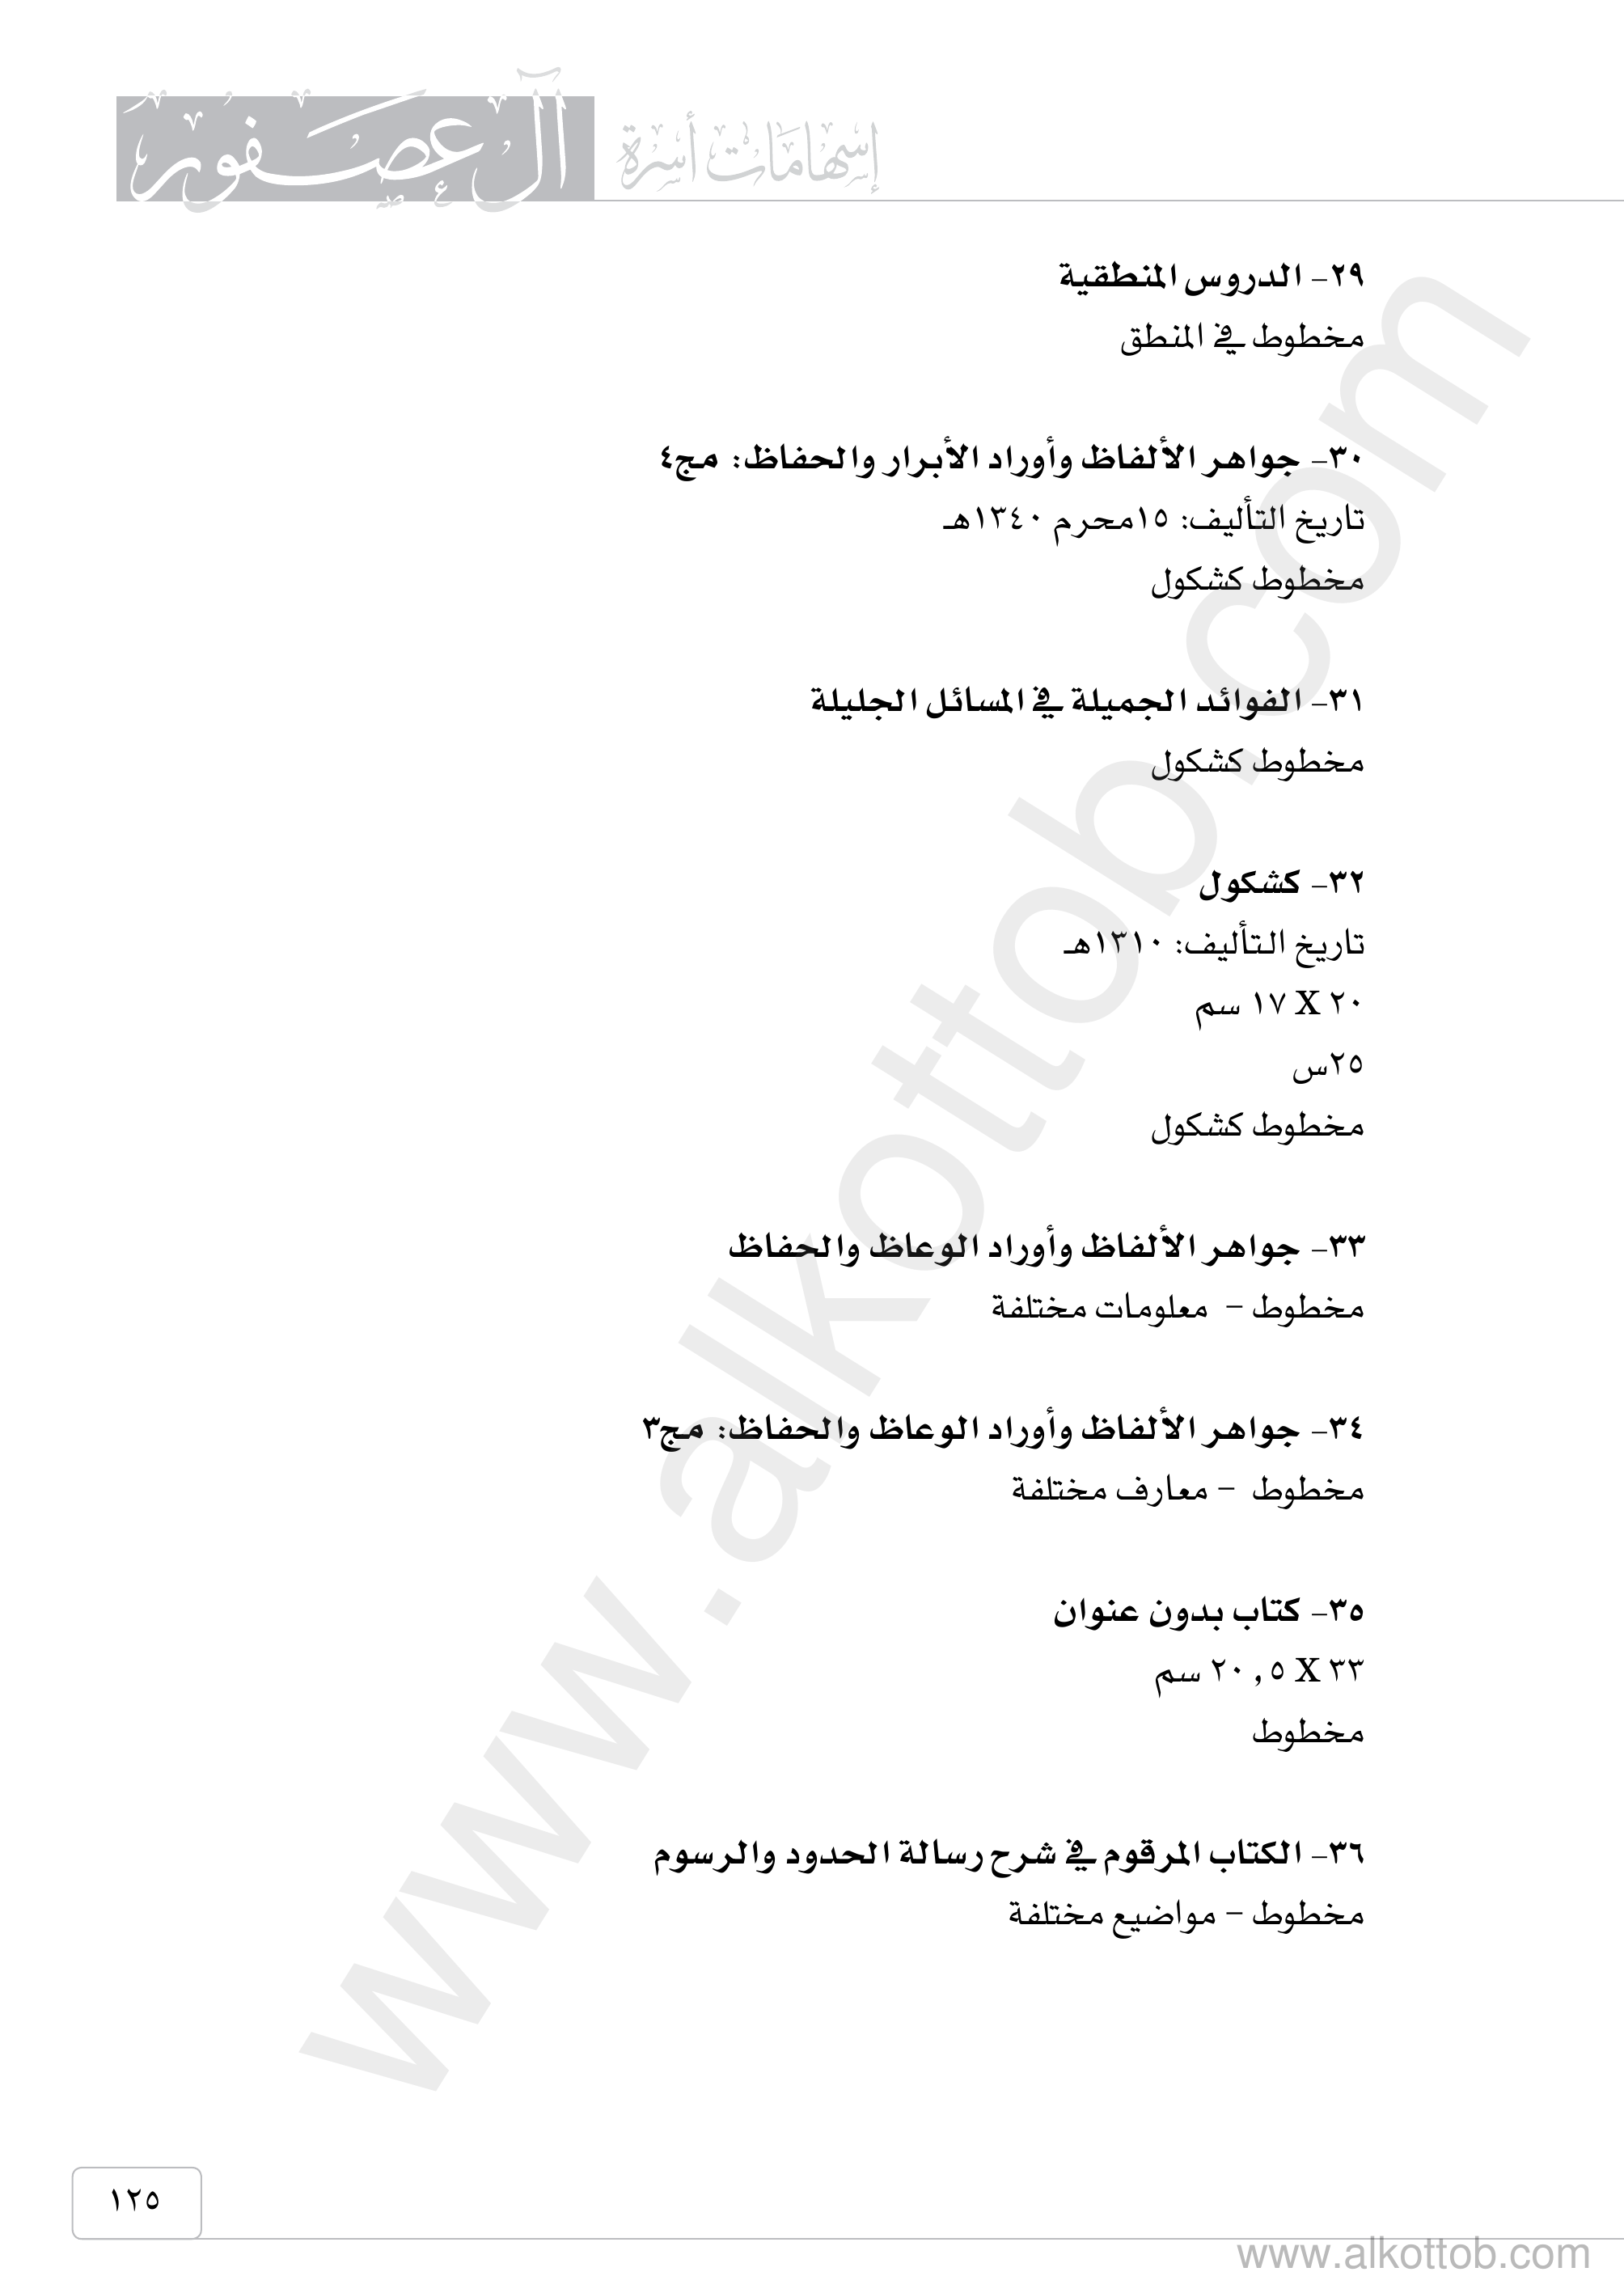 إسهامات أسرة آل عصفور
٢٩- الدروس المنطقية
مخطوط في المنطق
٣٠- جواهر الألفاظ وأوراد الأبرار والحفاظ: مج٤
تاريخ التأليف: ١٥محرم ١٣٤٠هـ
مخطوط كشكول
٣١- الفوائد الجميلة في المسائل الجليلة
مخطوط كشكول
٣٢- كشكول
تاريخ التأليف: ١٣١٠هـ
٢٠ X ١٧ سم
٢٥س
مخطوط كشكول
٣٣- جواهر الألفاظ وأوراد الوعاظ والحفاظ
مخطوط - معلومات مختلفة
٣٤- جواهر الألفاظ وأوراد الوعاظ والحفاظ: مج٣
مخطوط - معارف مختلفة
٣٥- كتاب بدون عنوان
٣٣ X ٢٠,٥ سم
مخطوط
٣٦- الكتاب المرقوم في شرح رسالة الحدود والرسوم
مخطوط - مواضيع مختلفة
١٢٥
www.alkottob.com
www.alkottob.com